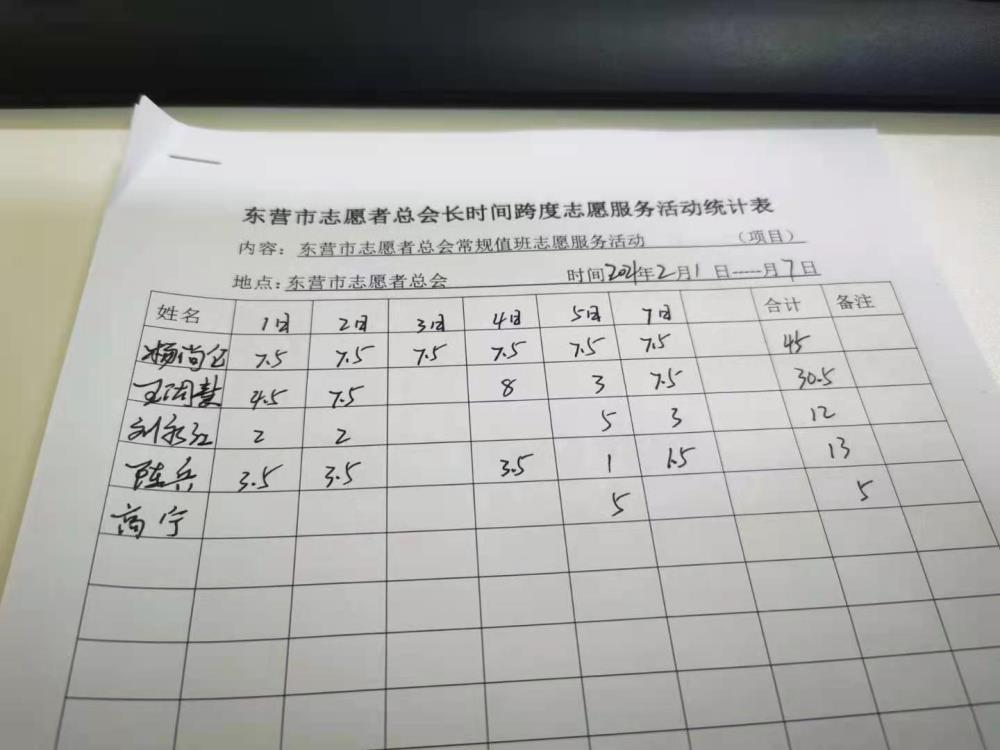 东营市志愿者总会长时间跨度志愿服务活动统计表
内容：东营市志愿者总会常规值班志愿服务活动 （项目）
地点：东营市志愿者总会 时间2021年2月1日-----月7日
姓名 1日 2日 3日 4日 5日 7日 合计 备注
杨尚 7.5 7.5 7.5 7.5 7.5 7.5 45
王慧 4.5 7.5 8 3 7.5 30.5
刘永红 2 2 5 3 12
陈兵 3.5 3.5 3.5 1 1.5 13
高宁 5 5